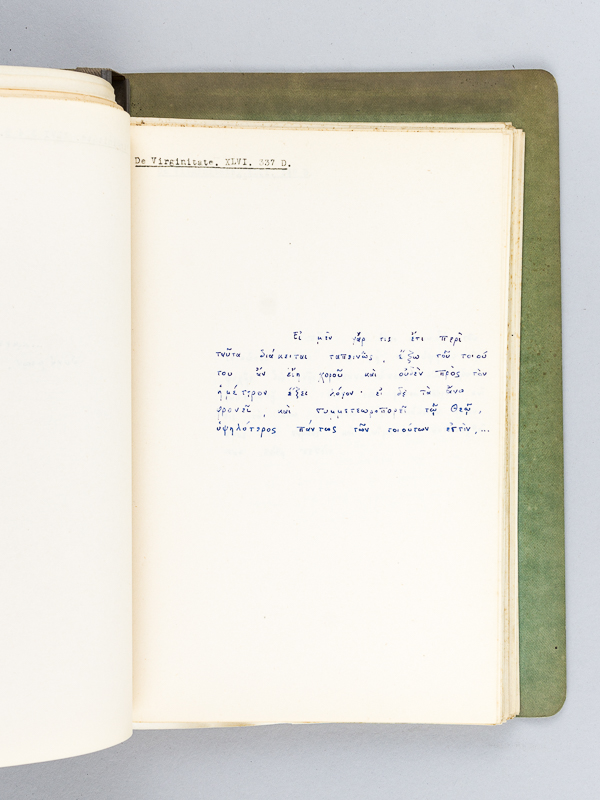 De Virginitate. XLVI. 337 D.
Εἰ μὲν γάρ τις ἔτι περὶ
ταῦτα διάκειται ταπεινῶς, ἔξω τοῦ τοιού
του ἂν εἴη χοροῦ καὶ οὐδὲν πρὸς τὸν
ἡμέτερον ἕξει λόγον· εἰ δὲ τὰ ἄνω
φρονεῖ, καὶ συμμετεωροπορεῖ τῷ Θεῷ,
ὑψηλότερος πάντως τῶν τοιούτων ἐστὶν,...